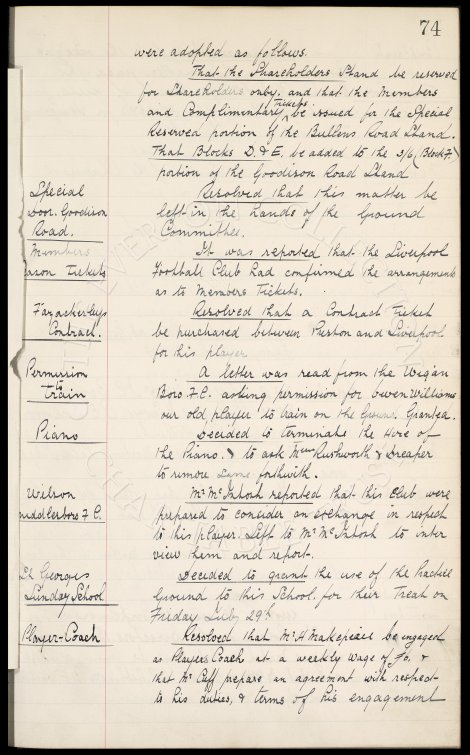 74
were adopted as follows.
That the Shareholders Stand be reserved
for Shareholders only, and that the Members
and Complimentary Tickets be issued for the Special
Reserved portion of the Bullens Road Stand.
That Blocks D. & E. be added to the 3/6 (Block F.)
portion of the Goodison Road Stand
Special
Door. Goodison
Road.
Resolved that this matter be
left in the hands of the Ground
Committee.
Members
Season Tickets
It was reported that the Liverpool
Football Club had confirmed the arrangements
as to Members Tickets.
Fazackerleys
Contract.
Resolved that a Contract Ticket
be purchased between Preston and Liverpool
for this player
Permission
to
train
A letter was read from the Wigan
Boro F.C. asking permission for Owen Williams
our old player to train on the Ground. Granted.
Piano
Decided to terminate the Hire of
the Piano. & to ask Messrs Rushworth & Dreaper
to remove same forthwith.
Wilson
Middlesboro F.C.
Mr McIntosh reported that this Club were
prepared to consider an exchange in respect
to this player. Left to Mr McIntosh to inter
view them and report.
St Georges
Sunday School
Decided to grant the use of the Practice
Ground to this School, for their Treat on
Friday July 29th
Player-Coach
Resolved that Mr H Makepeace be engaged
as Players Coach at a weekly wage of &
that Mr Cuff prepare an agreement with respect
to his duties, & terms of his engagement